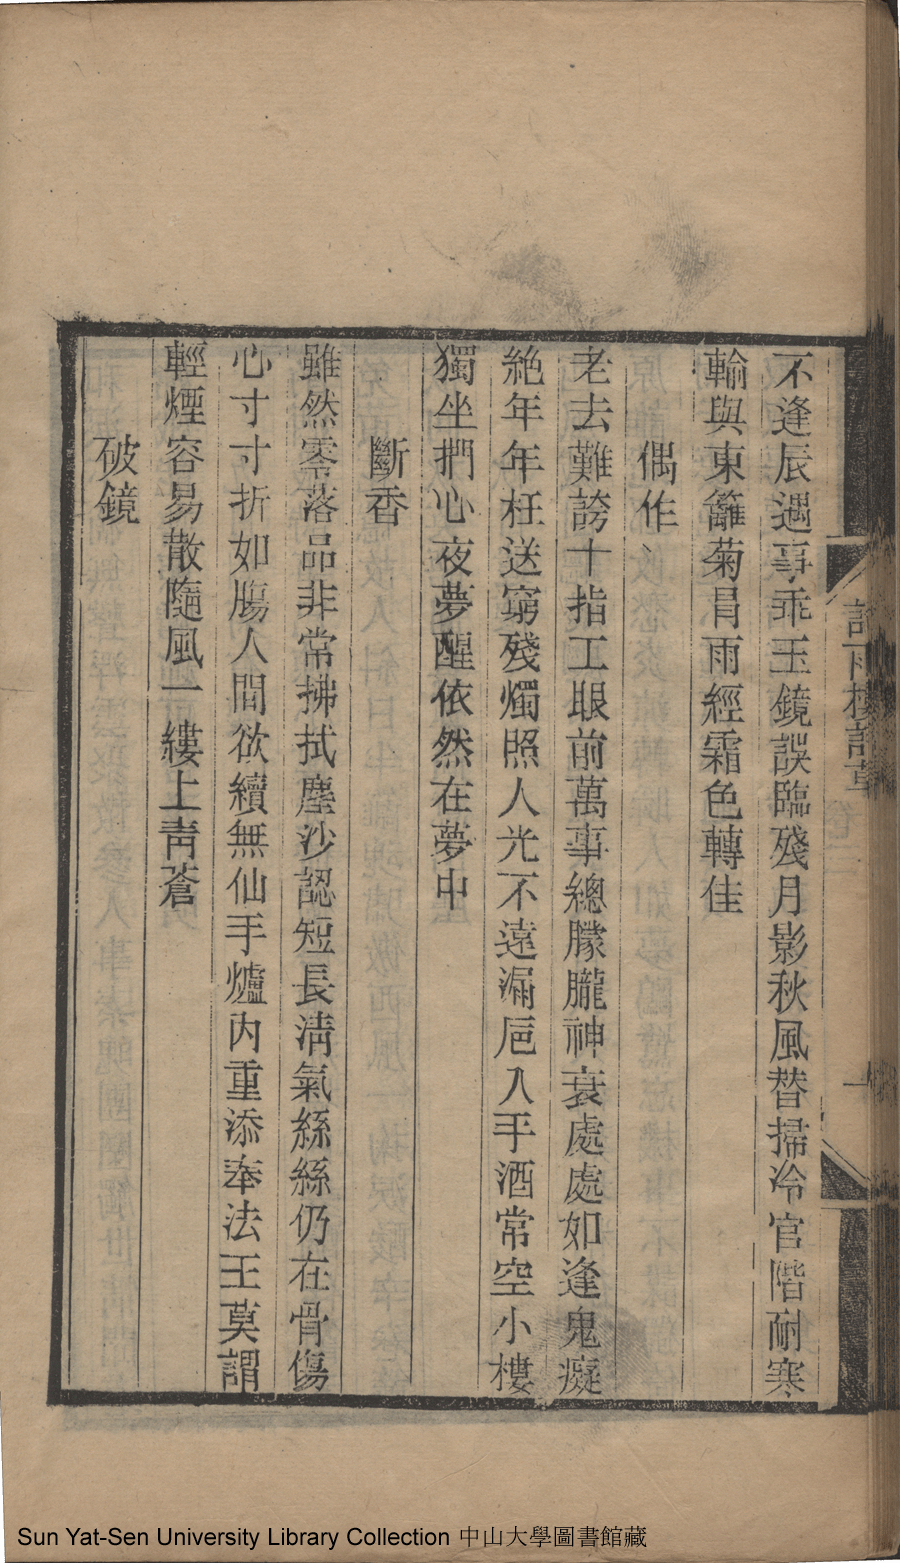 不逢辰遇事乖玉鏡誤臨殘月影秋風替掃冷官階耐寒
輸與東籬菊冐雨經霜色轉佳
偶作
老去難誇十指工眼前萬事總朦朧神衰處處如逢鬼癡
絕年年枉送窮殘燭照人光不遠漏巵入手酒常空小樓
獨坐捫心夜夢醒依然在夢中
斷香
雖然零落品非常拂拭塵沙認短長淸氣絲絲仍在骨傷
心寸寸折如膓人間欲續無仙手爐內重添奉法王莫謂
輕煙容易散隨風一縷上靑蒼
破鏡
雨樓詩草
Sun Yat-Sen University Library Collection 中山大學圖書館藏